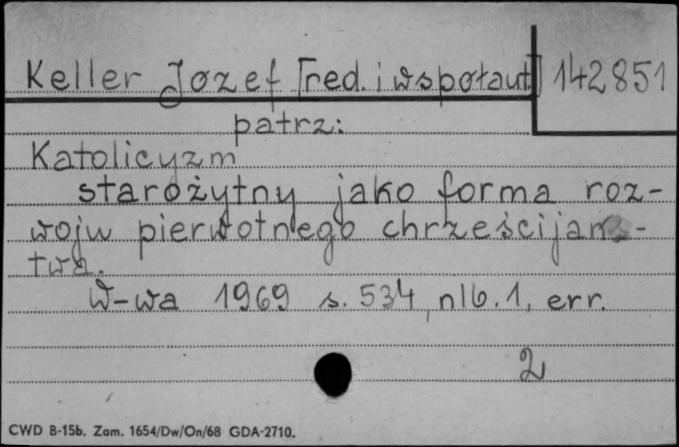 Keller Jozef [red. i wspołaut.] 142851
patrz:
Katolicyzm
starożytny jako forma roz-
woju pierwotnego chrześcijańs-
twa.
W-wa 1969 s. 534, nlb. 1, err.
2
CWD B-15b. Zam. 1654/Dw/On/68 GDA-2710.